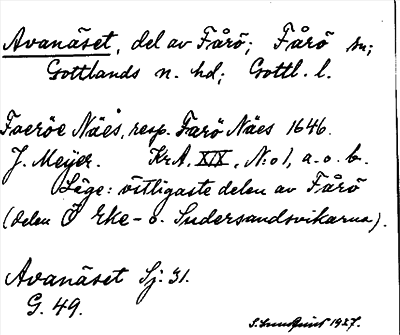 Avanäset, del av Fårö; Fårö sn;
Gottlands n. hd; Gottl. l.
Faeröe Näes, resp. Farö Näes 1646.
J. Meijer. KrA. XIX, N:o 1, a. o. b.
Läge: östligaste delen av Fårö
(delen Ö Eke- o. Sudersandsvikarna).
Avanäset Sj. 31.
G. 49.
S. Lundquist 1927.